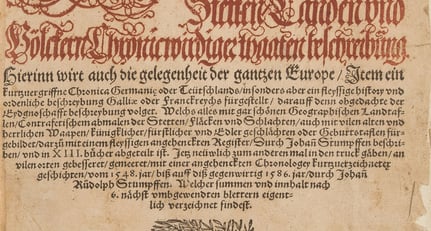 Stetten Landen und
Völckern Chronicwirdiger thaaten beschreibung.
Hierinn wirt auch die gelegenheit der gantzen Europe / Item ein
kurtzuergriffne Chronica Germanie oder Teütschlands / insonders aber ein fleyssige history vnd
ordenliche beschreybung Gallie oder Franckreychs fürgestellt / darauff denn obgedachte der
Eydgnoschafft beschreybung volget. Welchs alles mit gar schönen Geographischen Landtaf-
len / Contrafetischem abmalen der Stetten / Fläcken vnd Schlachten / auch mit vilen alten vnd
herrlichen Waapen / künigklicher / fürstlicher vnd Edler geschlächten oder Geburtstaflen für-
gebildet / darzů mit einem fleyssigen angehenckten Register / Durch Johan Stumpffen beschri-
ben / vnd in XIII. bücher abgeteilt ist. Jetz neüwlich zum anderen mal in den truck gäben / an
vilen orten gebesseret / gemeeret / mit einer angehenckten Chronologey kurtzuerzeichneter
geschichten / vom 1548. jar / biß auff diß gegenwirtig 1586. jar / durch Johañ
Růdolph Stumpffen. Welcher summen vnd innhalt nach
6. nächst vmbgewendten blettern eigent-
lich verzeichnet findest.